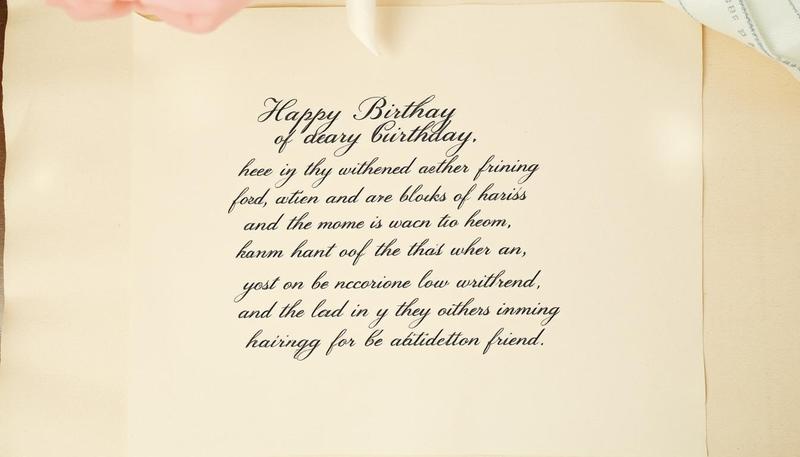 Happy Birthay
of deary birthday,
heee in thy withened aether frining
ford, atien and are blocks of hariss
and the mome is wacn tio heom,
kanm hant oof the thas wher an,
yost on be nccorione low writhrend,
and the lad in y they oithers inming
hairngg for be abtidetton friend.